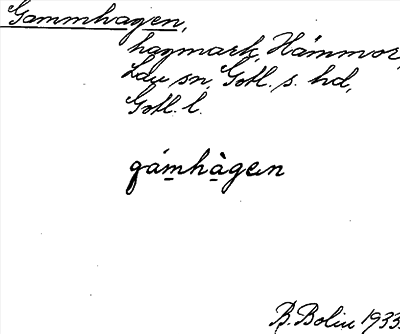 Gammhagen,
hagmark, Hammor,
Lau sn, Gotl. s. hd,
Gotl. l.
gámhàgen
B. Bolin 1933.